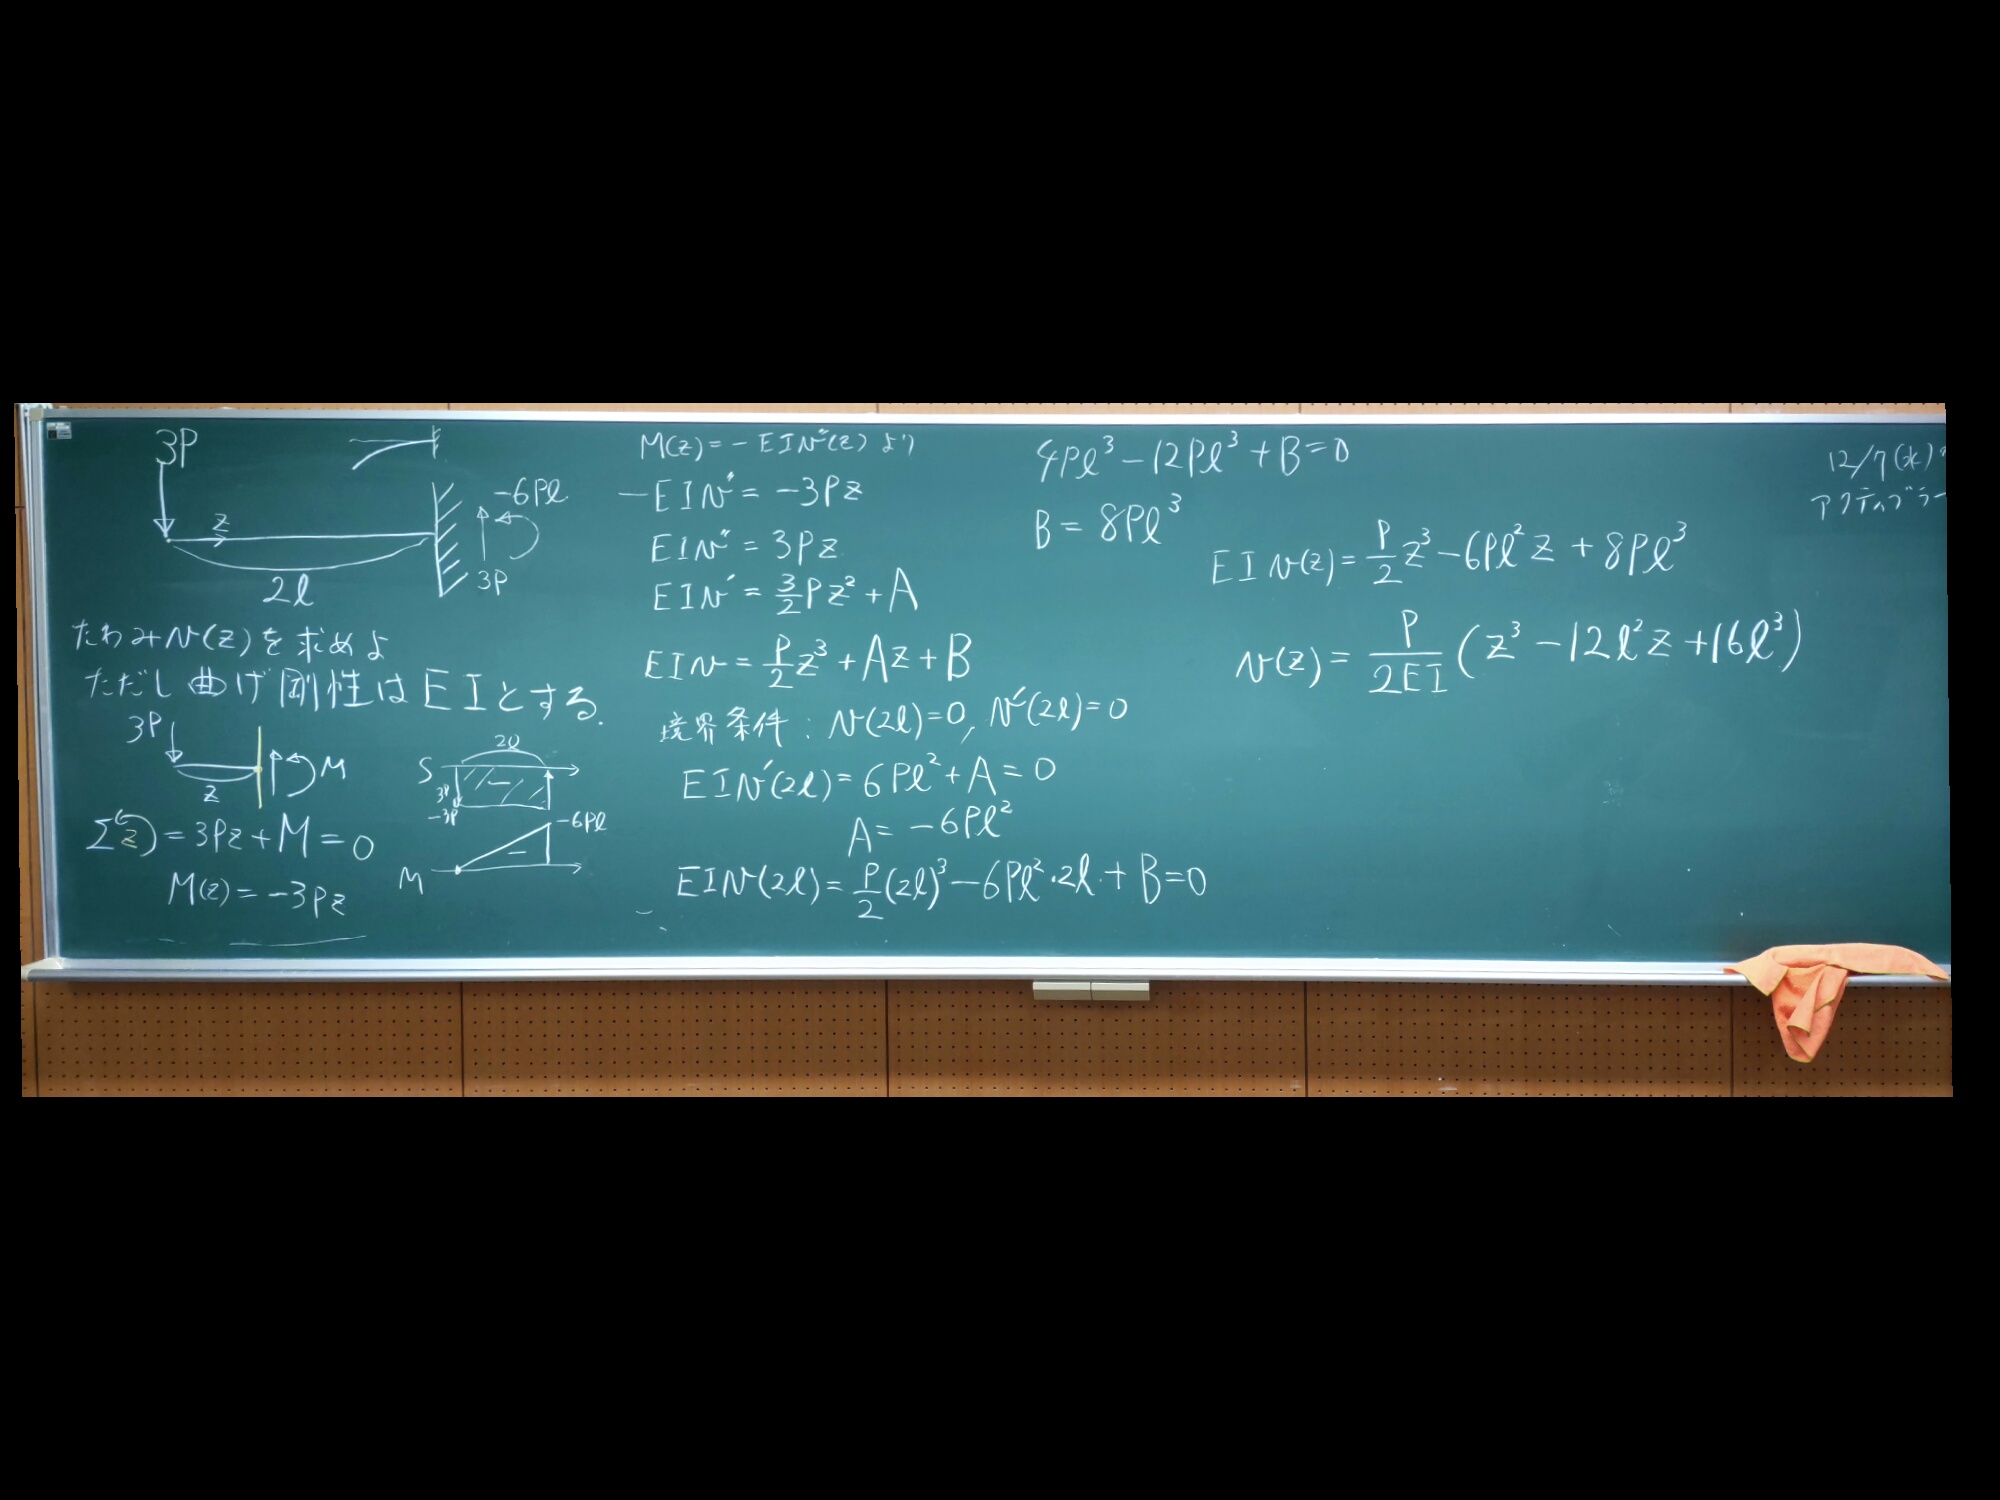 3P
z
2l
-6Pl
3P
たわみv(z)を求めよ
ただし曲げ剛性はEIとする.
3P
z
M
Σ(z) = 3Pz + M = 0
M(z) = -3Pz
S
2l
3P
-3P
-
M
-6Pl
-
M(z) = -EIv''(z) より
-EIv'' = -3Pz
EIv'' = 3Pz
EIv' = 3/2 Pz² + A
EIv = P/2 z³ + Az + B
境界条件 : v(2l)=0, v'(2l)=0
EIv'(2l) = 6Pl² + A = 0
A = -6Pl²
EIv(2l) = P/2 (2l)³ - 6Pl²・2l + B = 0
4Pl³ - 12Pl³ + B = 0
B = 8Pl³
EIv(z) = P/2 z³ - 6Pl²z + 8Pl³
v(z) = P/2EI (z³ - 12l²z + 16l³)
12/7(水)
アクティブラー